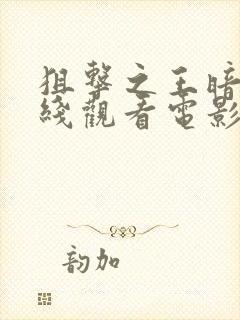 狙擊之王暗
綫觀看電影
韵加